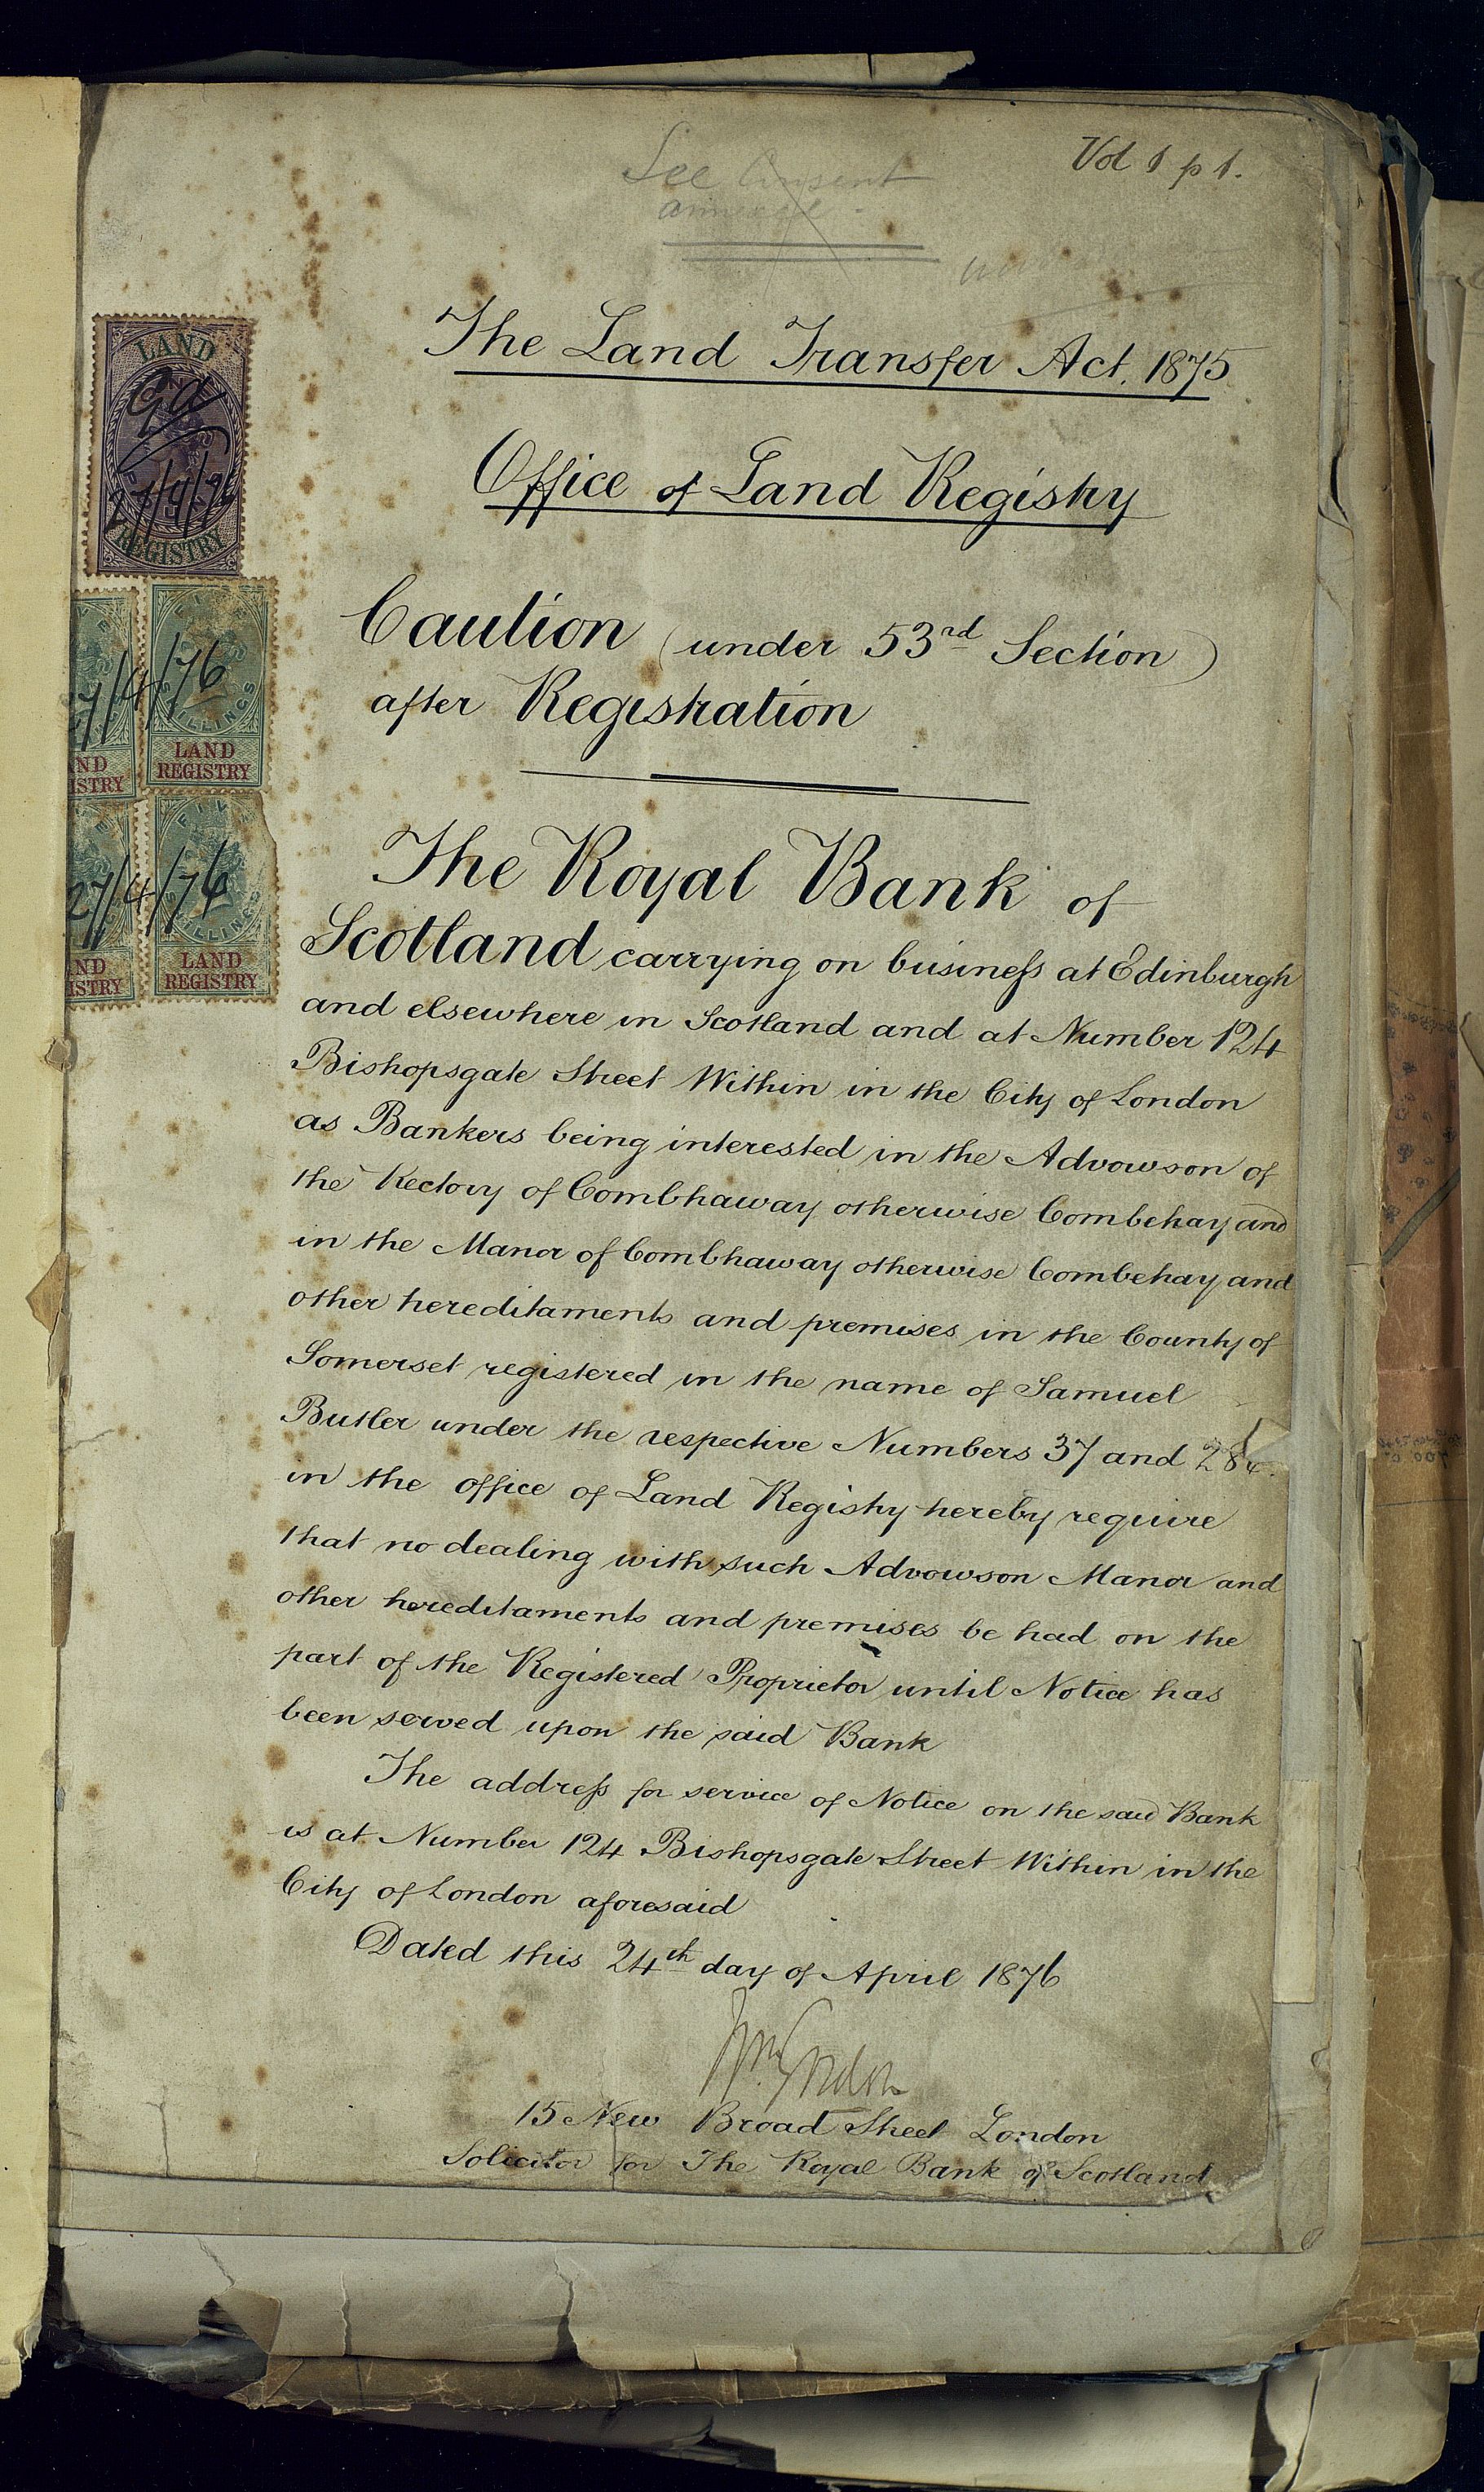 Vol 1 p 1.
See Consent
annexed
The Land Transfer Act, 1875
Office of Land Registry
Caution (under 53rd Section)
after Registration
The Royal Bank of
Scotland carrying on businefs at Edinburgh
and elsewhere in Scotland and at Number 124
Bishopsgate Street Within in the City of London
as Bankers being interested in the Advowson of
the Rectory of Combhaway otherwise Combehay and
in the Manor of Combhaway otherwise Combehay and
other hereditaments and premises in the County of
Somerset registered in the name of Samuel
Butler under the respective Numbers 37 and
in the office of Land Registry hereby require
that no dealing with such Advowson Manor and
other hereditaments and premises be had on the
part of the Registered Proprietor until Notice has
been served upon the said Bank
The addrefs for service of Notice on the said Bank
is at Number 124 Bishopsgate Street Within in the
City of London aforesaid
Dated this 24th day of April 1876
Wm. Gordon
15 New Broad Street London
Solicitor for The Royal Bank of Scotland
LAND
REGISTRY
27/4/76
LAND
REGISTRY
27/4/76
LAND
REGISTRY